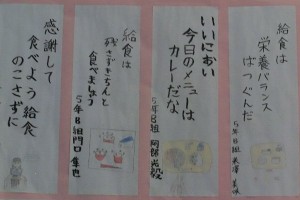 給食は
栄養バランス
ばつぐんだ
5年8組
いいにおい
今日のメニューは
カレーだな
5年8組 阿部
給食は
残さずきちんと
食べましょう
5年8組 門口
感謝して
食べよう給食
のこさずに